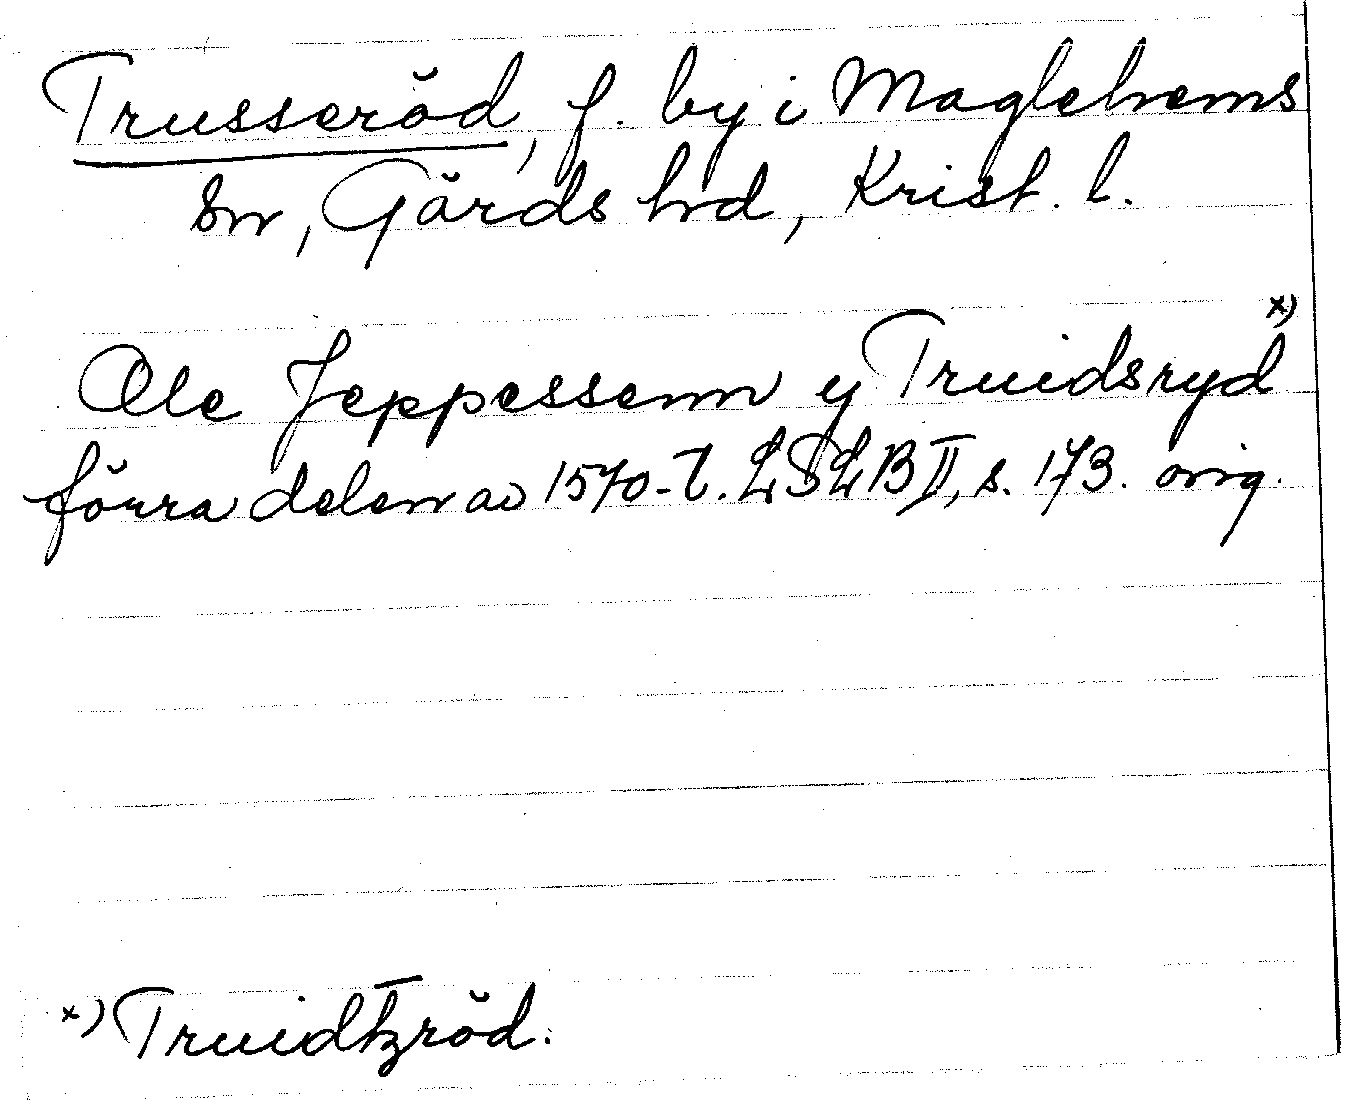 Trusseröd, f. by i Maglehems
sn, Gärds hd, Krist. l.
Ole Jeppessenn y Truidsryd x)
förra delen av 1570-t. LSLB II, s. 173. orig.
x) Truidtzröd.